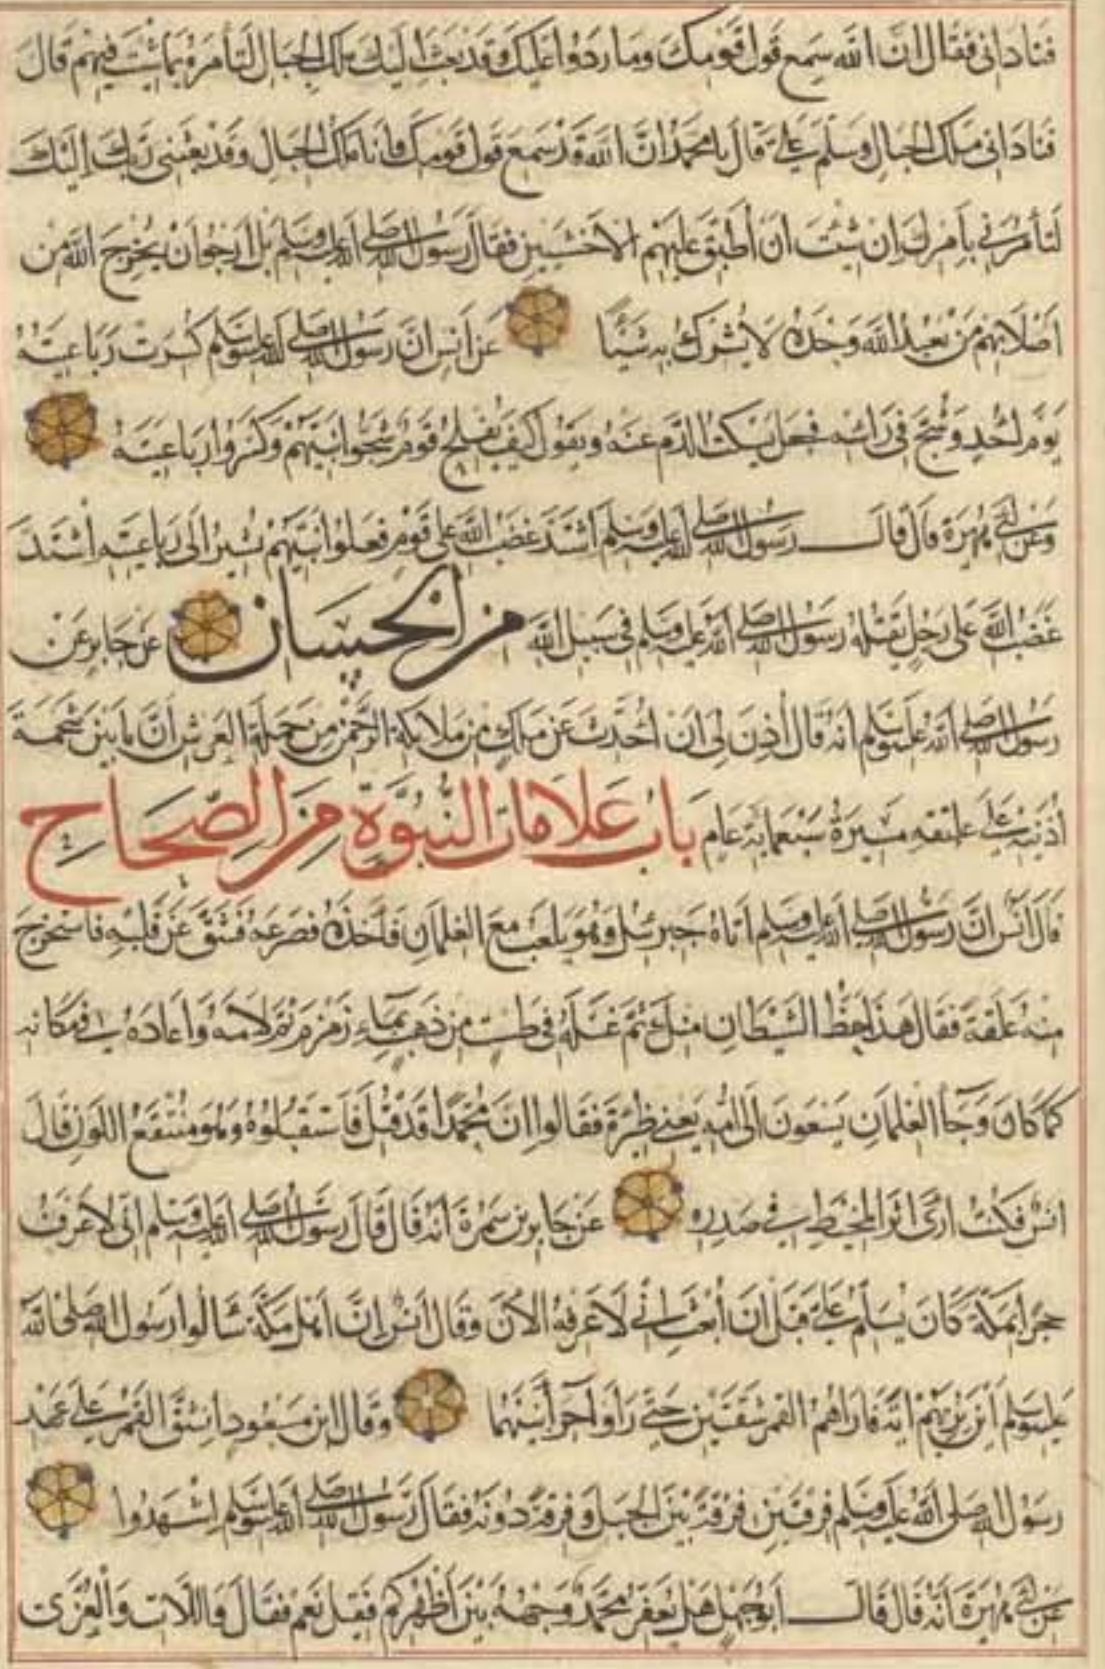 فناداني فقال ان الله سمع قول قومك وما ردوا عليك وقد بعث اليك ملك الجبال لتأمره بما شئت فيهم قال
فناداني ملك الجبال وسلم علي ثم قال يا محمد ان الله قد سمع قول قومك وانا ملك الجبال وقد بعثني ربك اليك
لتأمرني بامرك ان شئت ان أطبق عليهم الاخشبين فقال رسول الله صلى الله عليه وسلم بل ارجو ان يخرج الله من
اصلابهم من يعبد الله وحده لا يشرك به شيئا عن انس ان رسول الله صلى الله عليه وسلم كسرت رباعيته
يوم احد وشج في رأسه فجعل يسلت الدم عنه ويقول كيف يفلح قوم شجوا نبيهم وكسروا رباعيته
وعن أبي هريرة قال قال رسول الله صلى الله عليه وسلم اشتد غضب الله على قوم فعلوا بنبيهم يشير الى رباعيته اشتد
غضب الله على رجل يقتله رسول الله صلى الله عليه وسلم في سبيل الله من الحسان عن جابر عن
رسول الله صلى الله عليه وسلم أنه قال أذن لي ان أحدث عن ملك من ملائكة الرحمن من حملة العرش أن ما بين شحمة
أذنيه على عاتقه مسيرة سبعماية عام باب علامات النبوة من الصحاح
قال أنس ان رسول الله صلى الله عليه وسلم أتاه جبرئيل وهو يلعب مع الغلمان فأخذه فصرعه فشق عن قلبه فاستخرج
منه علقة فقال هذا حظ الشيطان منك ثم غسله في طست من ذهب بماء زمزم ثم لامه واعاده في مكانه
كما كان وجاء الغلمان يسعون الى امه يعني ظئره فقالوا ان محمدا قد قتل فاستقبلوه وهو منتقع اللون قال
انس فكنت ارى اثر المخيط في صدره عن جابر بن سمرة أنه قال قال رسول الله صلى الله عليه وسلم اني لاعرف
حجرا بمكة كان يسلم علي قبل أن أبعث اني لاعرفه الآن وقال انس ان أهل مكة سالوا رسول الله صلى الله
عليه وسلم أن يريهم آية فاراهم القمر شقتين حتى راوا حرآ بينهما وقال ابن مسعود انشق القمر على عهد
رسول الله صلى الله عليه وسلم فرقتين فرقة بين الجبل وفرقة دونه فقال رسول الله صلى الله عليه وسلم اشهدوا
عن أبي هريرة أنه قال قال أبو جهل هل يعفر محمد وجهه بين أظهركم فقيل نعم فقال واللات والعزى